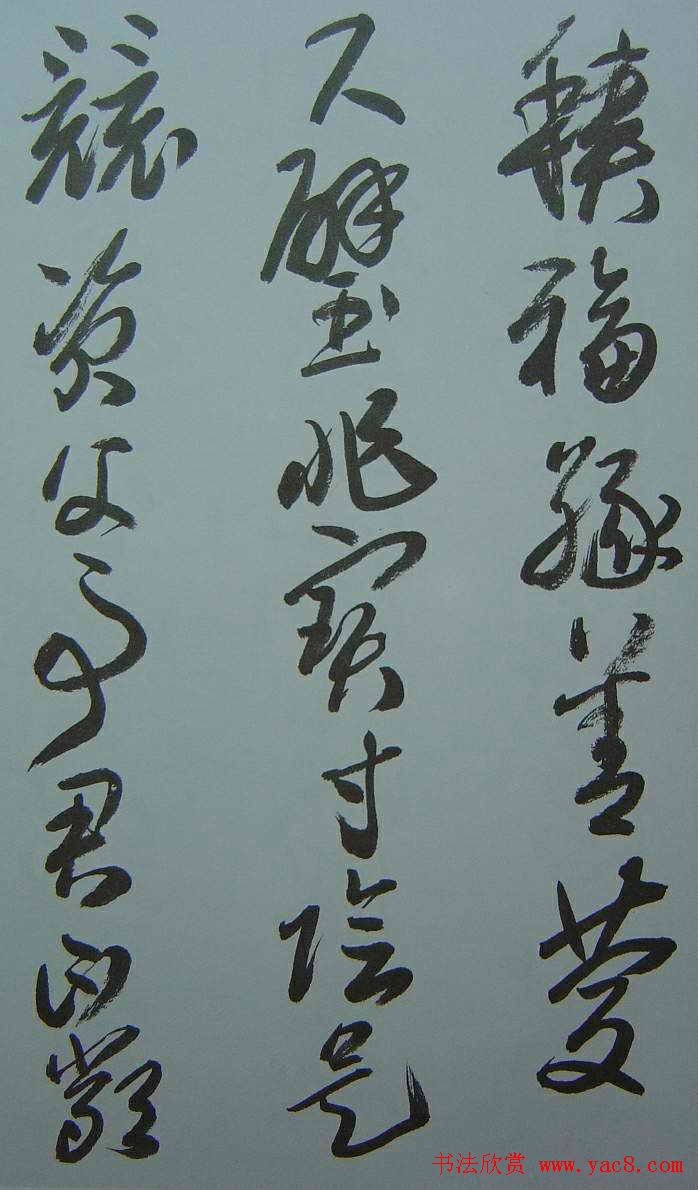 積福緣善慶
尺璧非寶寸陰是
競資父事君曰嚴
书法欣赏 www.yac8.com